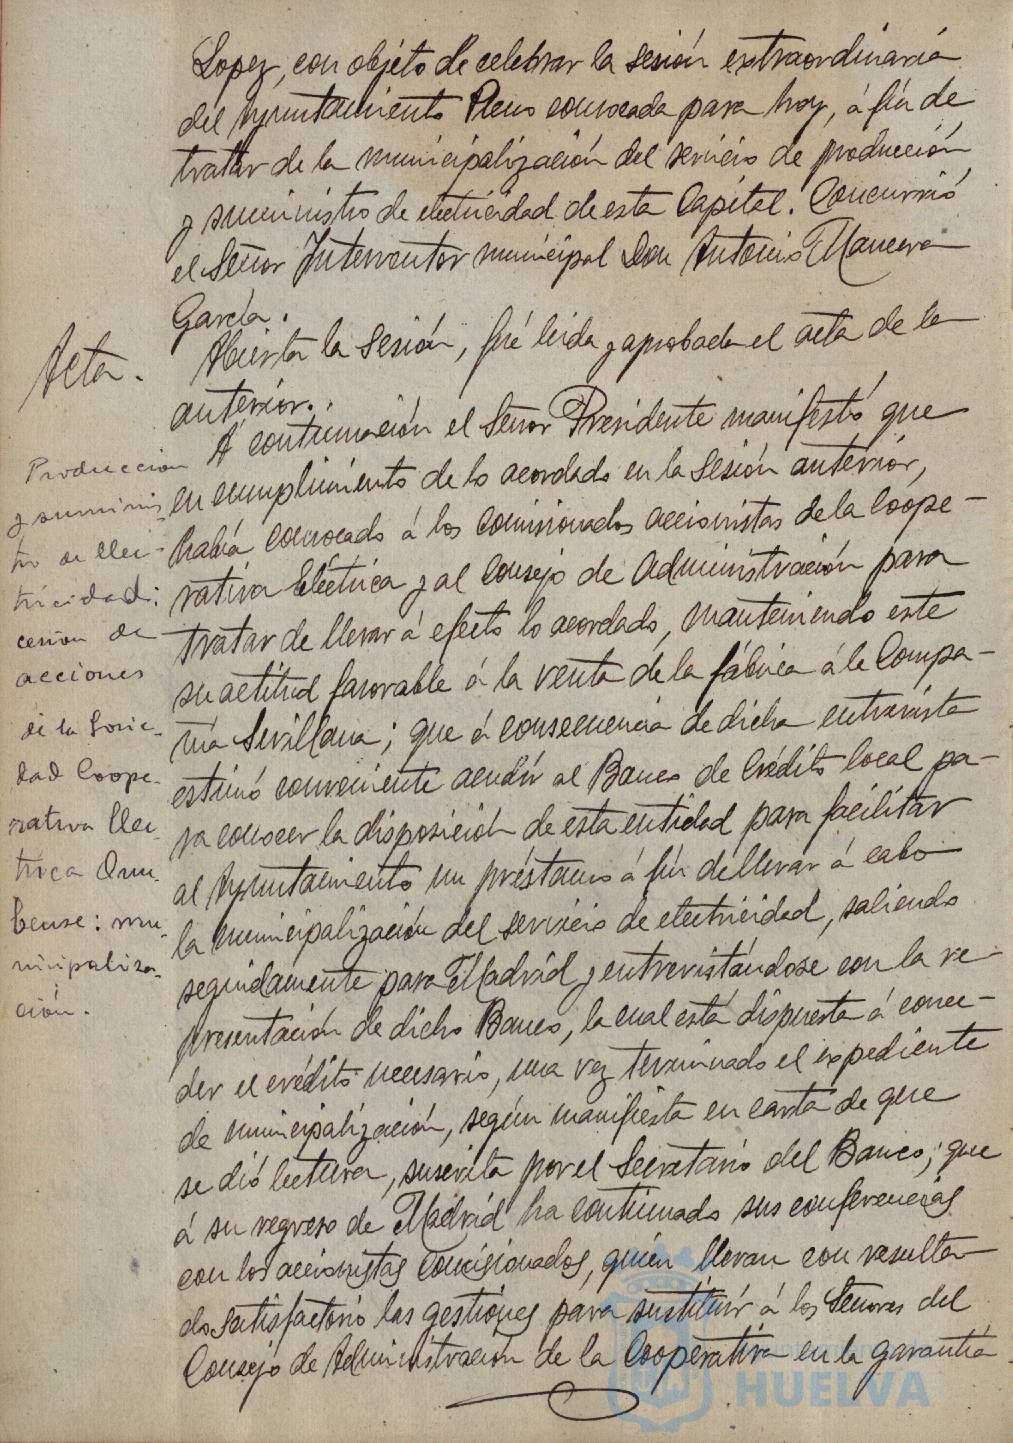 Lopez, con objéto de celebrar la sesión extraordinaria
del Ayuntamiento Pleno convocada para hoy, á fin de
tratar de la municipalización del servicio de producción
y suministro de electricidad de esta Capital. Concurrió
el Señor Interventor municipal Don Antonio Mancera
García.
Acta.
Abierta la Sesión, fué leida y aprobada el acta de la
anterior.
Produccion
y suminis-
tro de elec-
tricidad:
cesion de
acciones
de la Socie-
dad Coope-
rativa Elec-
trica Onu-
bense: mu-
nicipaliza-
ción.
A continuación el Señor Presidente manifestó que
en cumplimiento de lo acordado en la Sesión anterior,
había convocado á los comisionados accionistas de la Coope-
rativa Eléctrica y al Consejo de Administración para
tratar de llevar á efecto lo acordado, manteniendo este
su actitud favorable á la venta de la fábrica á la Compa-
ñia Sevillana; que á consecuencia de dicha entrevista
estimó conveniente acudir al Banco de Crédito Local pa-
ra conocer la disposición de esta entidad para facilitar
al Ayuntamiento un préstamo á fin de llevar á cabo
la municipalización del servicio de electricidad, saliendo
seguidamente para Madrid y entrevistándose con la re-
presentación de dicho Banco, la cual está dispuesta á conce-
der el crédito necesario, una vez terminado el expediente
de municipalización, según manifiesta en carta de que
se dió lectura, suscrita por el Secretario del Banco; que
á su regreso de Madrid ha continuado sus conferencias
con los accionistas comisionados, quién llevan con resulta-
do satisfactorio las gestiones para sustituir á los Señores del
Consejo de Administración de la Cooperativa en la garantía
HUELVA